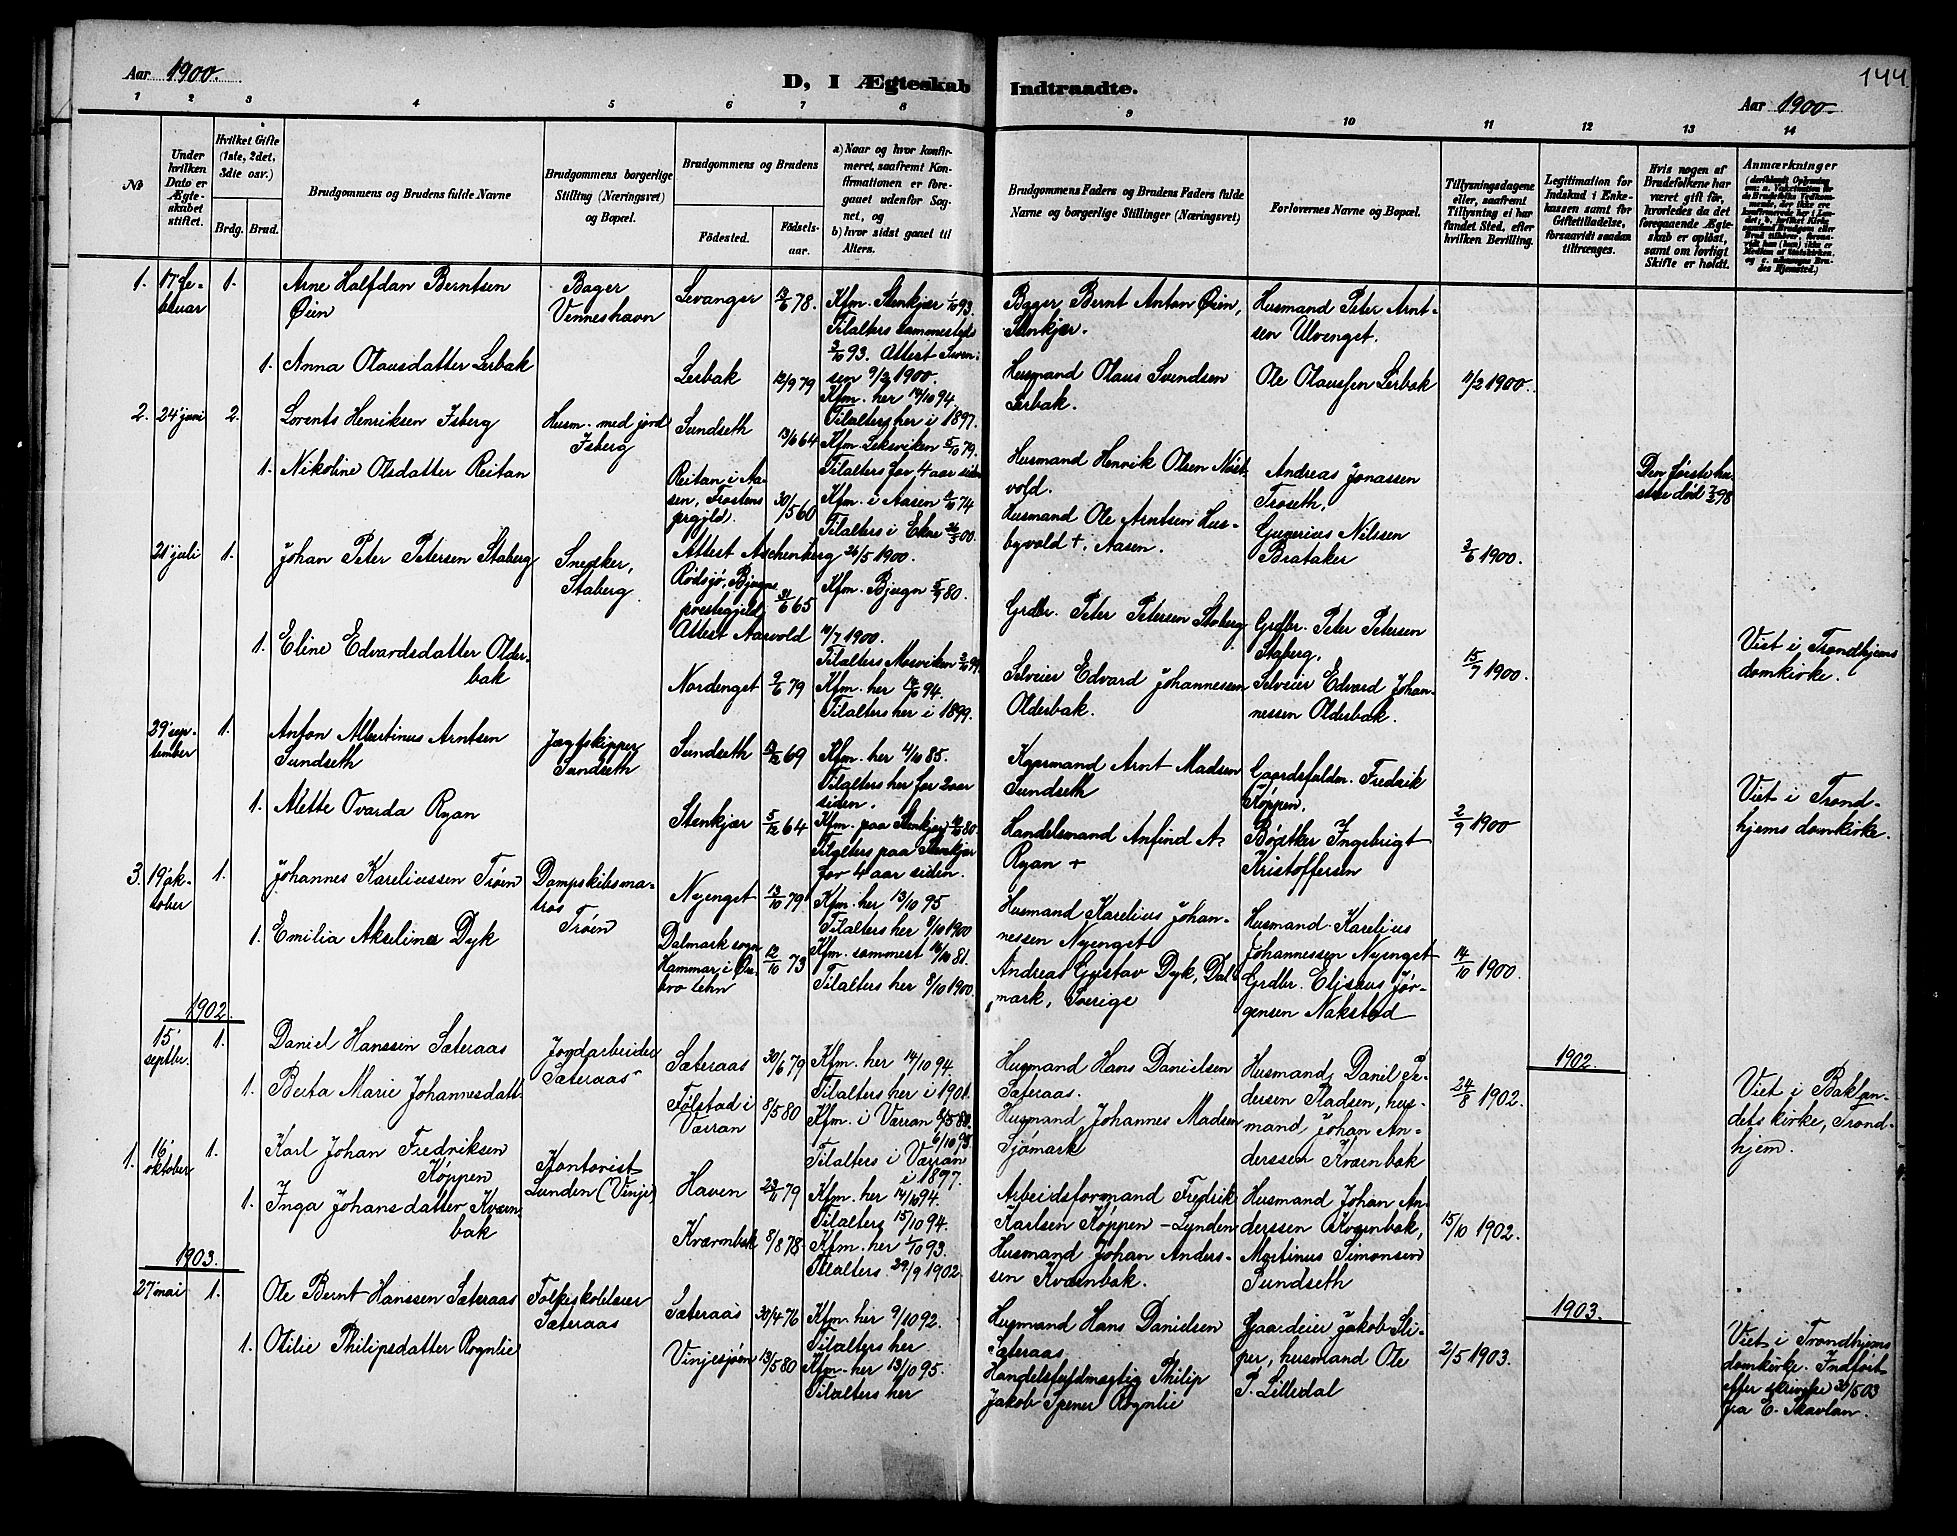 144
Aar 1900.
D, I Ægteskab Indtraadte.
Aar 1900.
1 2 3 4 5 6 7 8 9 10 11 12 13 14
No
Under hvilken Dato er Ægteskabet stiftet.
Hvilket Gifte (1ste, 2det, 3die osv.)
Brdg. Brud.
Brudgommens og Brudens fulde Navne
Brudgommens borgerlige Stilling (Næringsvei) og Bopæl.
Brudgommens og Brudens
Fødested.
Fødselsaar.
a) Naar og hvor konfirmeret, saafremt Konfirmationen er foregaaet udenfor Sognet, og
b) hvor sidst gaaet til Alters.
Brudgommens Faders og Brudens Faders fulde Navne og borgerlige Stillinger (Næringsvei)
Forlovernes Navne og Bopæl.
Tillysningsdagene eller, saafremt Tillysning ei har fundet Sted, efter hvilken Bevilling.
Legitimation for Indskud i Enkekassen samt for Giftetilladelse, forsaavidt saadan tiltrænges.
Hvis nogen af Brudefolkene har været gift før, hvorledes da det foregaaende Ægteskab er opløst, samt om lovligt Skifte er holdt.
Anmærkninger
1. 17 februar 1. Arne Halfdan Berntsen
Øien
Bager
Venneshavn
Levanger 13/6 78.
Kfm. Stenkjær 1/10 93.
Tilalters sammesteds
3/10 93. Attest
9/2 1900.
Bager, Bernt Anton Øien,
Stenkjær.
Husmand Peter Arntsen Ulvenget.
1. Anna Olausdatter Lerbak
Lerbak 12/9 79
Kfm. her 14/10 94.
Tilalters her i 1897.
Husmand Olaus Svendsen
Lerbak.
Ole Olaussen Lerbak
11/2 1900.
2. 24 juni 2. Lorents Henriksen Isberg
Husm. med jord
Isberg
Sundseth 13/6 64
Kfm. Leksviken 5/10 79.
Tilalters for 4 aar siden
Husmand Henrik Olsen
Andreas Jonassen
Troseth,
Den første hustru død 7/3 98
1. Nikoline Olsdatter Reitan
Reitan i Aasen, Frostens
prgjld. 30/5 60
Kfm. i Aasen 74
Tilalters i Ekne
Attest Aschenberg 26/5 1900.
Husmand Ole Arntsen Husbyvold +, Aasen.
Gunerius Nilssen
Brataker
3/6 1900.
21 juli 1. Johan Peter Petersen Staberg
Snedker,
Staberg
Rødsjø, Bjugns
prestegjeld 21/6 65
Kfm. Bjugn 5/9 80.
Attest Aasvold 10/7 1900.
Tilalters Mosviken
Grdbr. Peter Petersen Staberg
Grdbr. Peter Petersen
Staberg,
15/7 1900.
Viet i Trondhjems
domkirke.
1. Eline Edvardsdatter Olderbak
Nordenget 9/6 79
Kfm. her 14/10 94.
Tilalters her i 1899.
Selveier Edvard Johannessen
Olderbak.
Selveier Edvard Johannessen Olderbak.
29 september 1. Anton Albertinus Arntsen
Sundseth
Jægtskipper
Sundseth
Sundseth 12/12 69
Kfm. her 4/10 85.
Tilalters her for 2 aar
siden.
Kaarmand Arnt Madsen
Sundseth
Gaardsfuldm. Fredrik
Køppen.
Viet i Trondhjems domkirke.
1. Alette Ovarda Ryan
Stenkjær 5/12 64
Kfm. paa Stenkjær 80.
Tilalters paa Stenkjær
for 4 aar siden.
Handelsmand Anfind A.
Ryan +
Bødtker Ingebrigt
Kristoffersen
2/9 1900
3. 19 oktober 1. Johannes Kareliussen Trøen
Dampskibsmatros
Trøen
Nyenget 13/10 79
Kfm. her 13/10 95
Tilalters her 8/10 1900
Husmand Karelius Johannessen Nyenget
Husmand Karelius
Johannessen Nyenget
14/10 1900.
1. Emilia Akseline Dyk
Dalmark sogn
Hammar, i Ørebro lehn 12/10 73
Kfm. sammest 16/10 81.
Tilalters her 8/10 1900.
Andreas Gustav Dyk, Dalmark, Sverige
Grdbr. Eliseus Jørgensen Nakstad
1902.
15 septbr. 1. Daniel Hanssen Sæteraas
Jordarbeider
Sæteraas
Sæteraas 30/6 79
Kfm. her 14/10 94.
Tilalters her i 1901.
Husmand Hans Danielsen
Sæteraas.
Husmand Danil Pedersen Stadsen, husmand Johan Anderssen Kværnbak
24/8 1902.
1902.
Viet i Baklandets kirke, Trondhjem.
1. Berta Marie Johannesdatt.
Følstad i
Værran 8/5 80
Kfm. i Værran
6/10 95.
Tilalters i Værran
i 1897.
Husmand Johannes Madsen
Sjømark
1. 16 oktober 1. Karl Johan Fredriksen
Køppen
Kontorist
Lunden (Vinje)
Haven 23/11 79
Kfm. her 14/10 94.
Tilalters 15/10 94.
Arbeidsformand Fredrik
Karlsen Køppen - Lunden
Husmand Johan Anderssen Kværnbak,
15/10 1902.
1. Inga Johansdatter Kværnbak
Kværnbak 8/8 78
Kfm. her 1/10 93.
Tilalters 29/9 1902.
Husmand Johan Anderssen Kværnbak.
Martinus Simonsen
Sundseth
1903.
27 mai 1. Ole Bernt Hanssen Sæteraas
Folkeskolelærer
Sæteraas
Sæteraas 30/4 76
Kfm. her 9/10 92.
Tilalters her
Husmand Hans Danielsen
Sæteraas
Gaardeier Jakob Sliper, husmand Ole
P. Lilledal
2/5 1903.
1903.
Viet i Trondhjems
domkirke. Indført
efter skrivelse 30/5 03
fra E. Skavlan.
1. Otilie Philipsdatter Rognlie
Vinjesjøen 13/5 80
Kfm. her 13/10 95.
Tilalters her
Handelsfuldmægtig Philip
Jakob Spener Rognlie